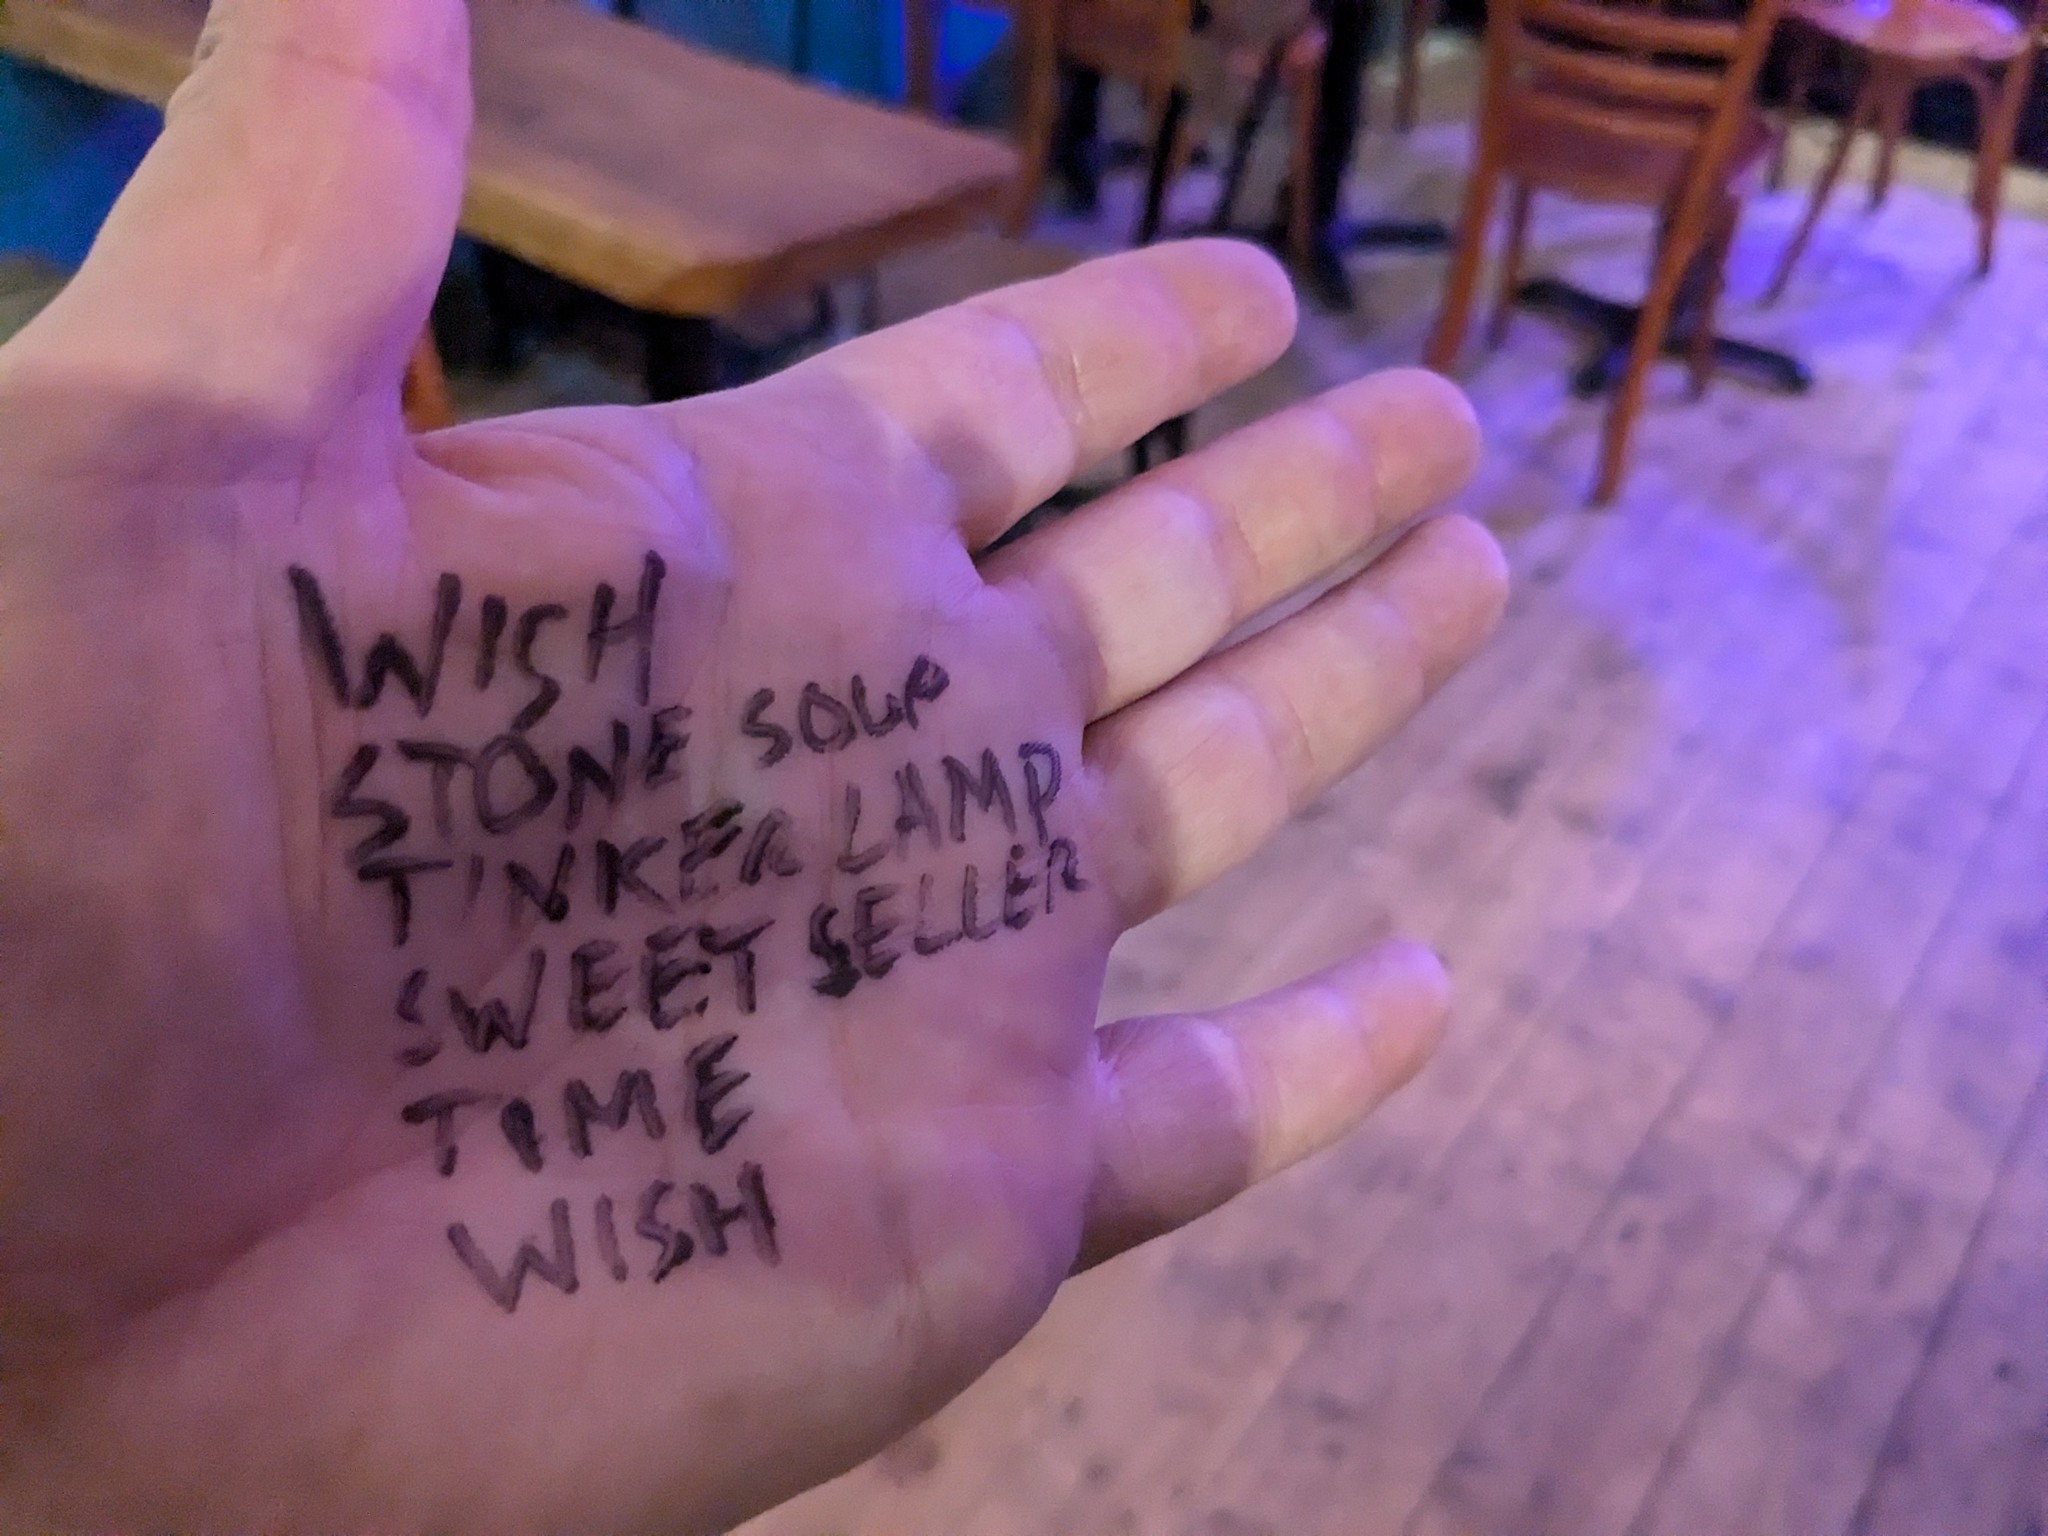 WISH
STONE SOUP
TINKER LAMP
SWEET SELLER
TIME
WISH